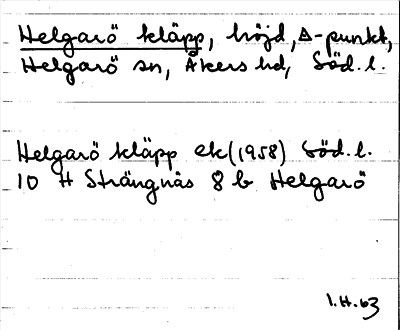 Helgarö kläpp, höjd, Δ-punkt,
Helgarö sn, Åkers hd, Söd. l.
Helgarö kläpp ek (1958) Söd. l.
10 H Strängnäs 8 b Helgarö
I.H. 63